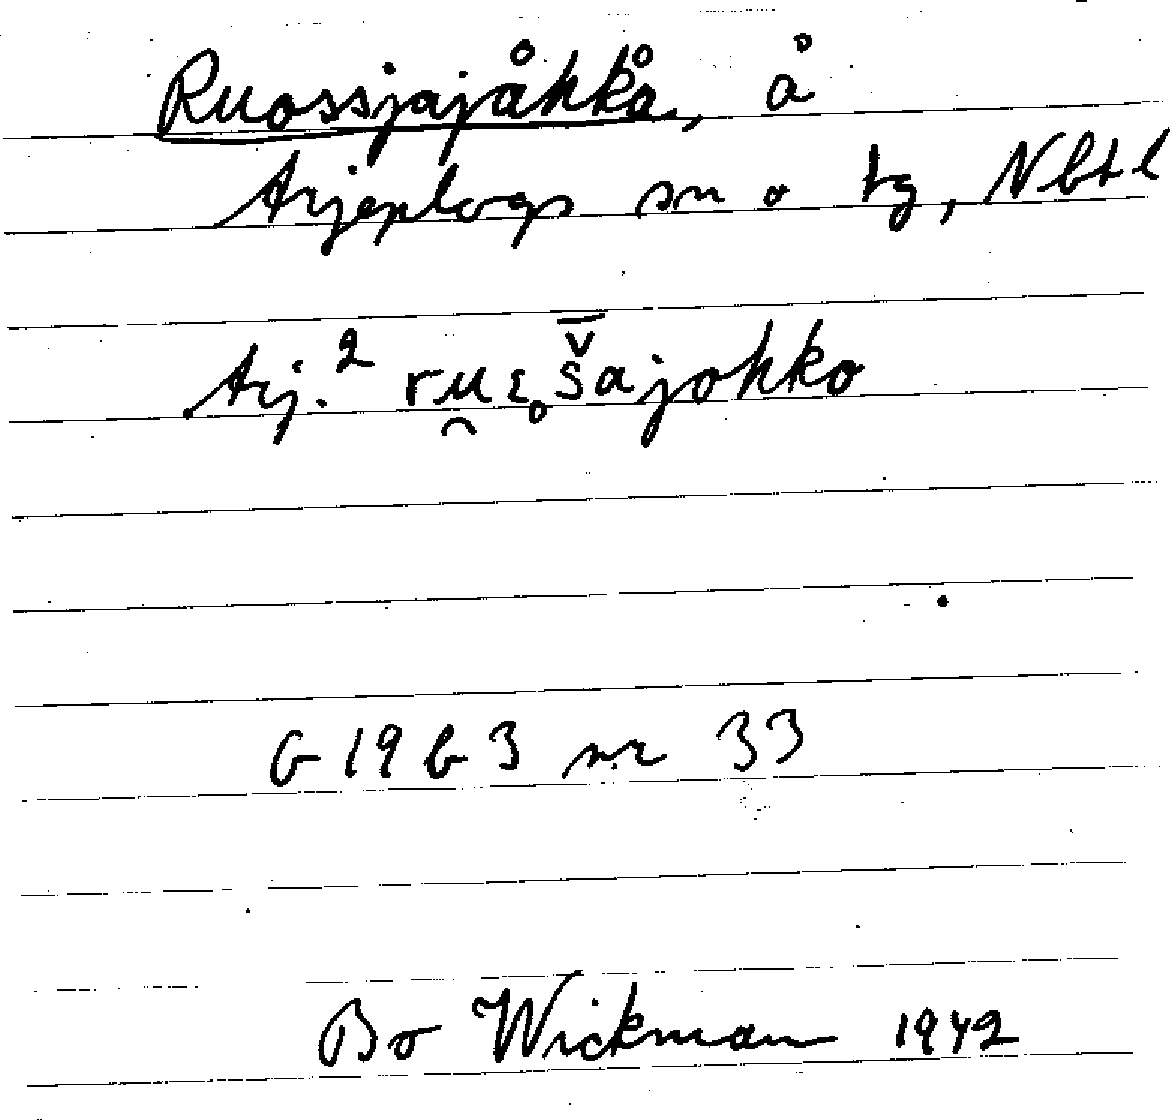 Ruossjajåhkå, å
Arjeplogs sn o tg, Nbtl
Arj.² ru̯ɛ˳š̄ajohko
G 19 b 3 nr 33
Bo Wickman 1942